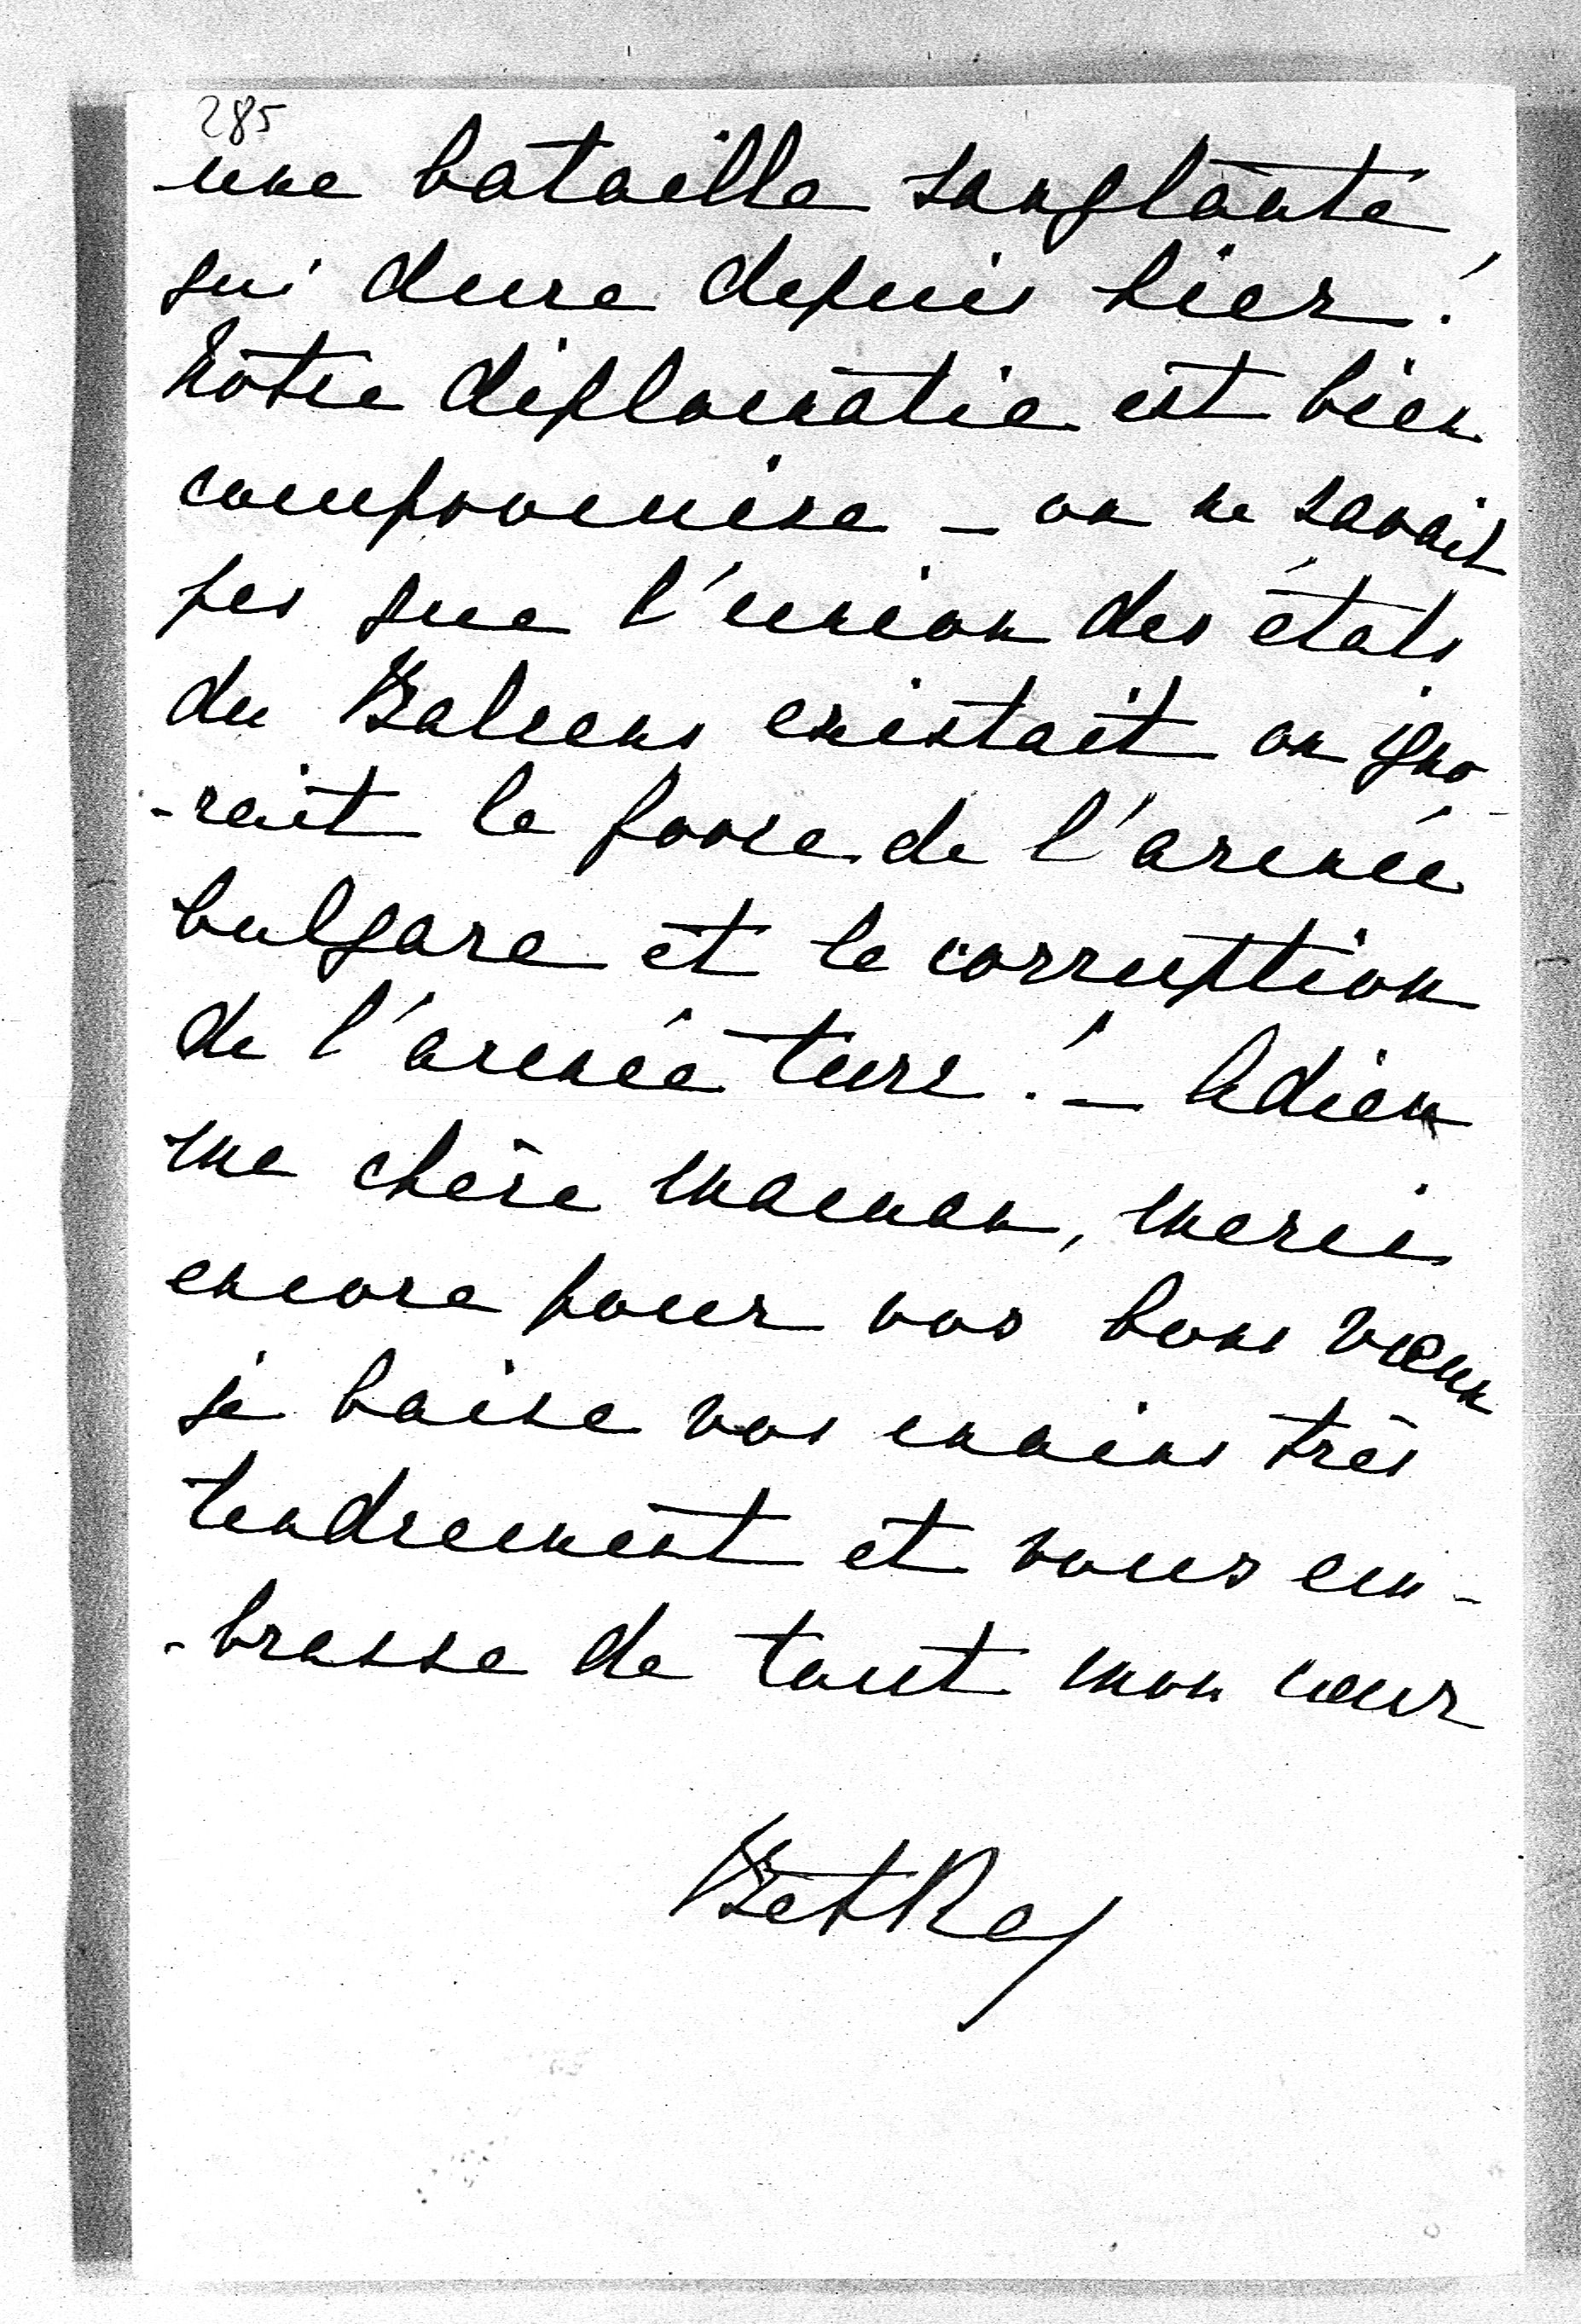 285
une bataille sanglante
qui dure depuis hier!
Notre diplomatie est bien
compromise – on ne savait
pas que l'union des états
du Balcans existait on igno-
-rait la force de l'armée
bulgare et la corruption
de l'armée turc! – Adieu
ma chère maman, merci
encore pour vos bons vœux
je baise vos mains très
tendrement et vous em-
-brasse de tout mon cœur